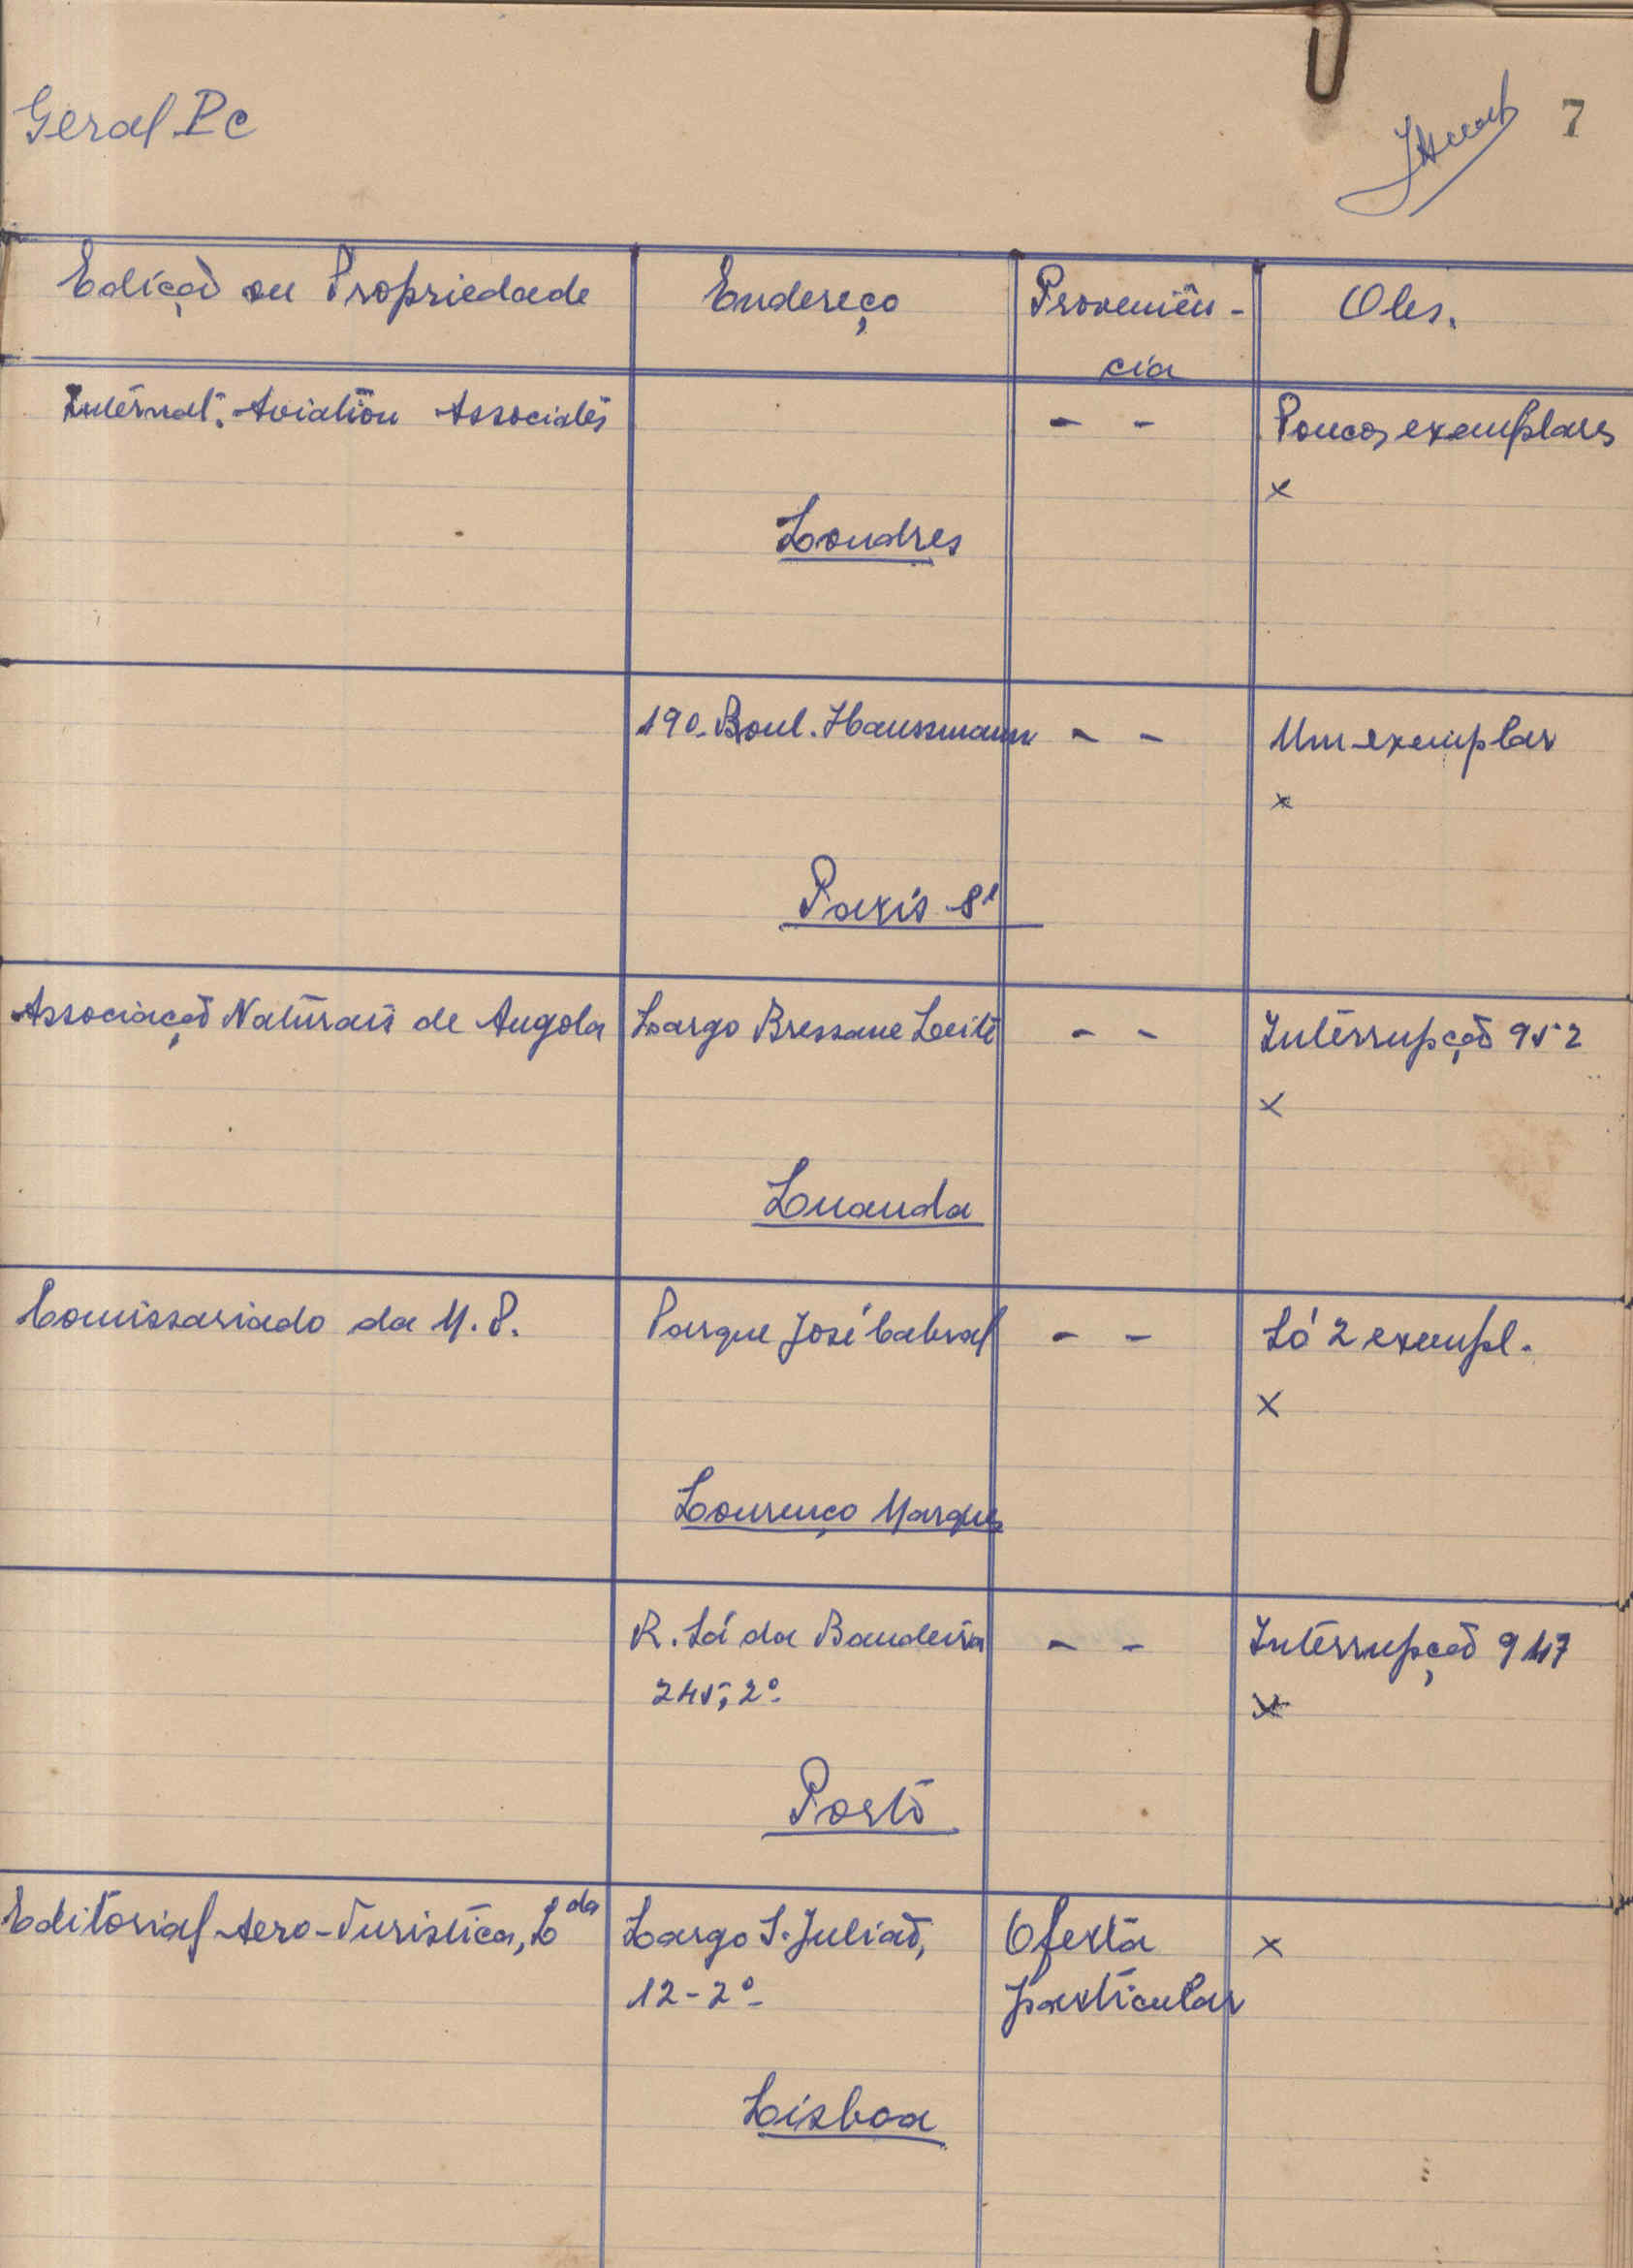 Geral Pc
7
Edição ou Propriedade Endereço Proveniên-
cia
Obs.
Internat. Aviation Associates - - Poucos exemplares
x
Londres
190-Boul. Haussmann - - Um exemplar
x
Paris-8e
Associação Naturais de Angola Largo Bressane Leite - - Interrupção 952
x
Luanda
Comissariado da M.P. Parque José Cabral - - Só 2 exempl.
x
Lourenço Marques
R. Sá da Bandeira - - Interrupção 947
245, 2º x
Porto
Editorial Aero-Turistica, Lda Largo S. Julião, Oferta x
12-2º particular
Lisboa